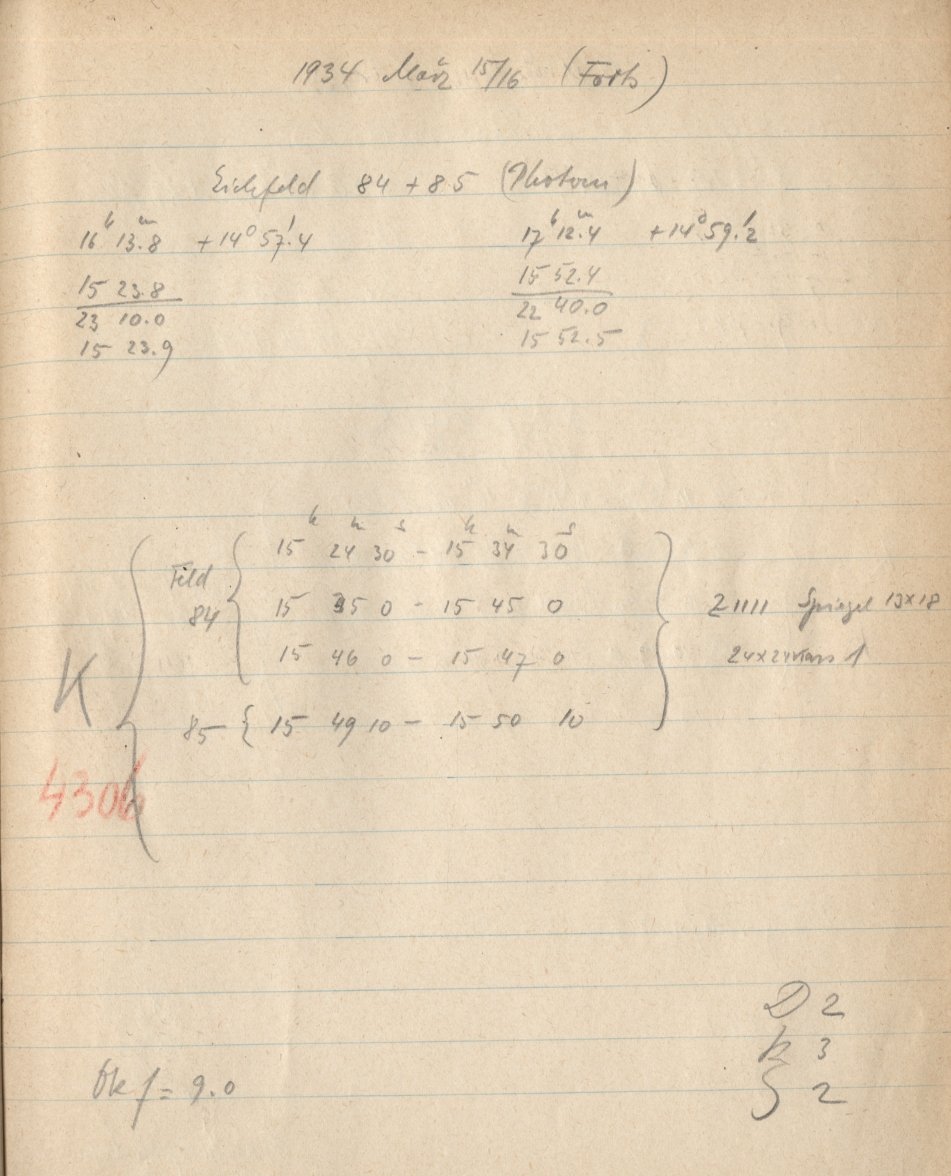 1934 März 15/16 (Forts)
Eichfeld 84 + 85 (Photom)
16h 13m.8 +14° 57'.4
15 23.8
23 10.0
15 23.9
17h 12m.4 +14° 59'.2
15 52.4
22 40.0
15 52.5
h m s h m s
15 24 30 - 15 34 30
Feld
84
15 35 0 - 15 45 0
15 46 0 - 15 47 0
85 { 15 49 10 - 15 50 10
Z1111 Spiegel 13x18
24x24
K
4306
D 2
K 3
S 2
f = 9.0